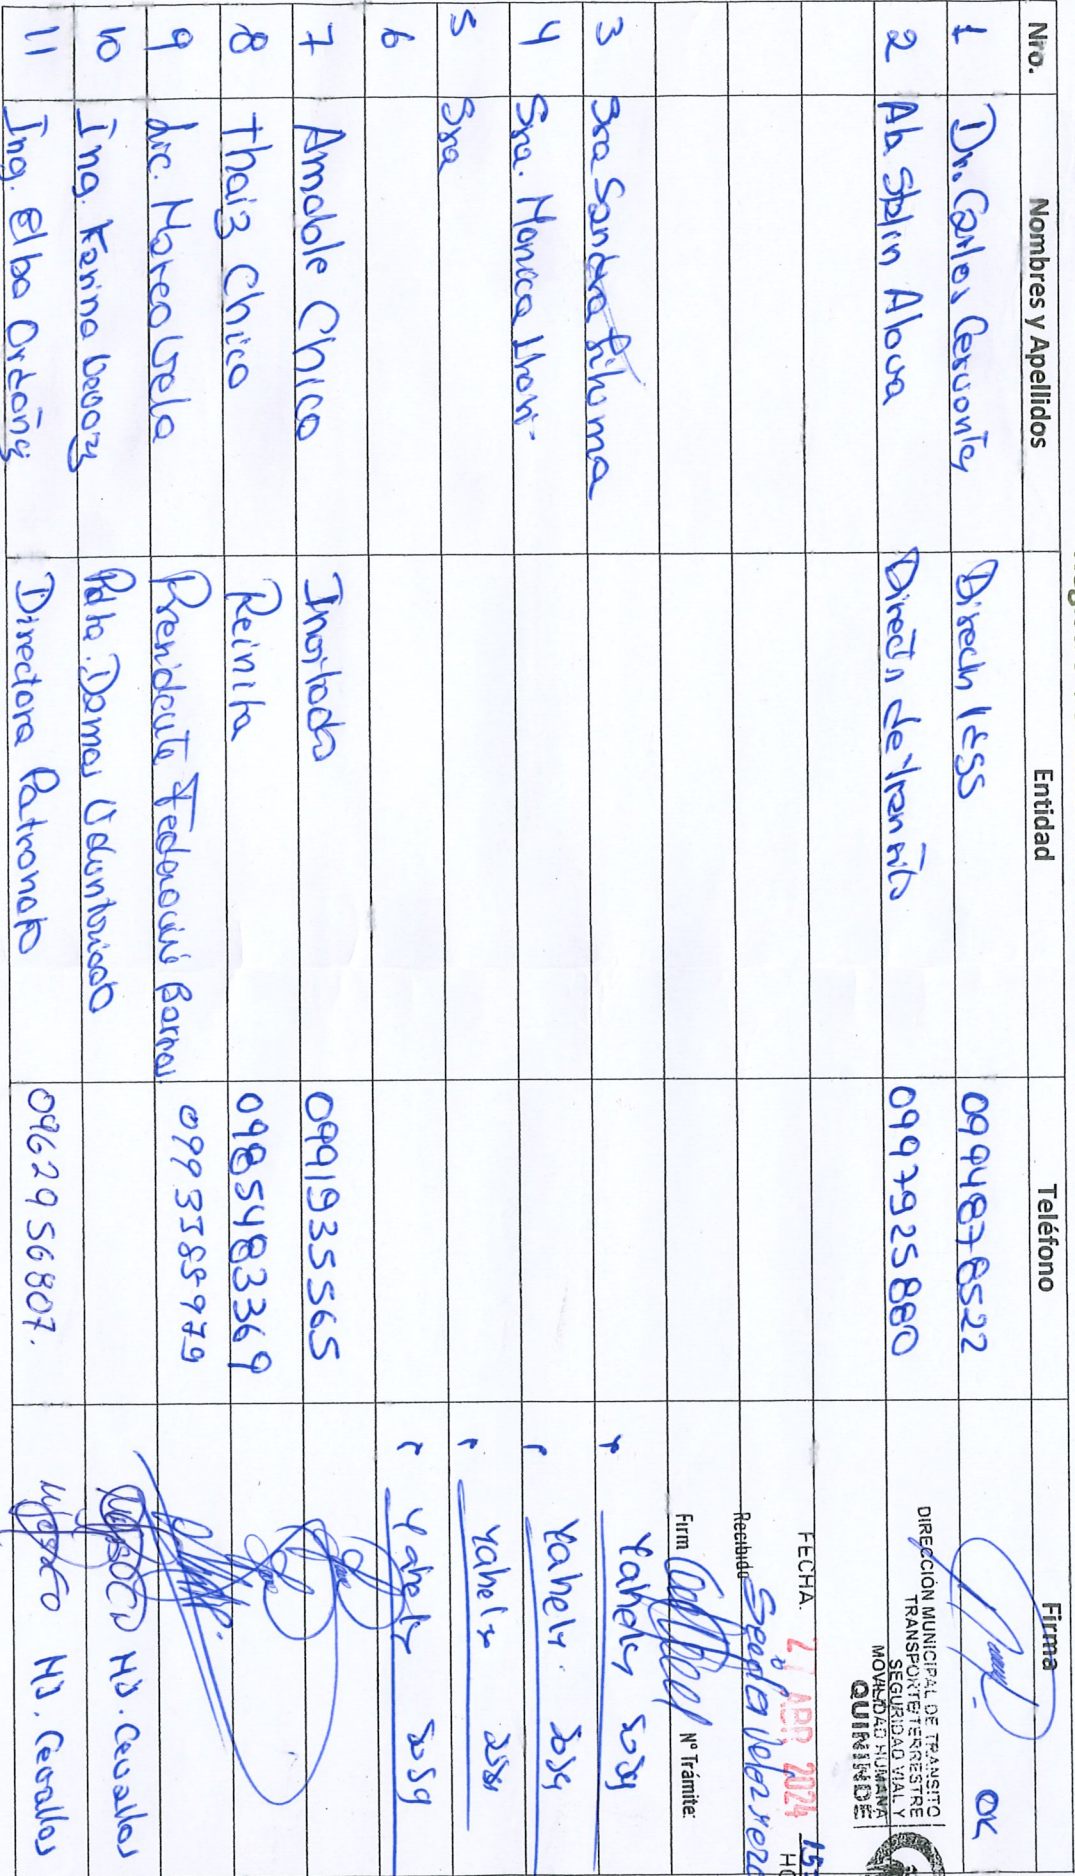 Nro. Nombres y Apellidos Entidad Teléfono Firma
1 Dr. Carlos Cervantes Director IESS 0994878522 OK
2 Ab Stalin Alava Director de Transito 0997925880
DIRECCIÓN MUNICIPAL DE TRANSITO
TRANSPORTE TERRESTRE
SEGURIDAD VIAL Y
MOVILIDAD HUMANA
QUININDE
FECHA. 2 ABR 2024 15
Recibido
Firm Nº Trámite:
3 Sra Sandra Yahely Sosa
4 Sra. Monica Yahely. Sosa
5 Sra Yahely Sosa
6 Yahely Sosa
7 Amable Chica Invitado 0991935565
8 Thaiz Chica Reinita 0985483369
9 Lic. Marco Vela Presidente Federación Barrios.
10 Ing. Karina Damas Voluntariado MJ. Cevallos
11 Ing. Elba Ordoñez Directora Patronato 0962956807. MJ. Cevallos